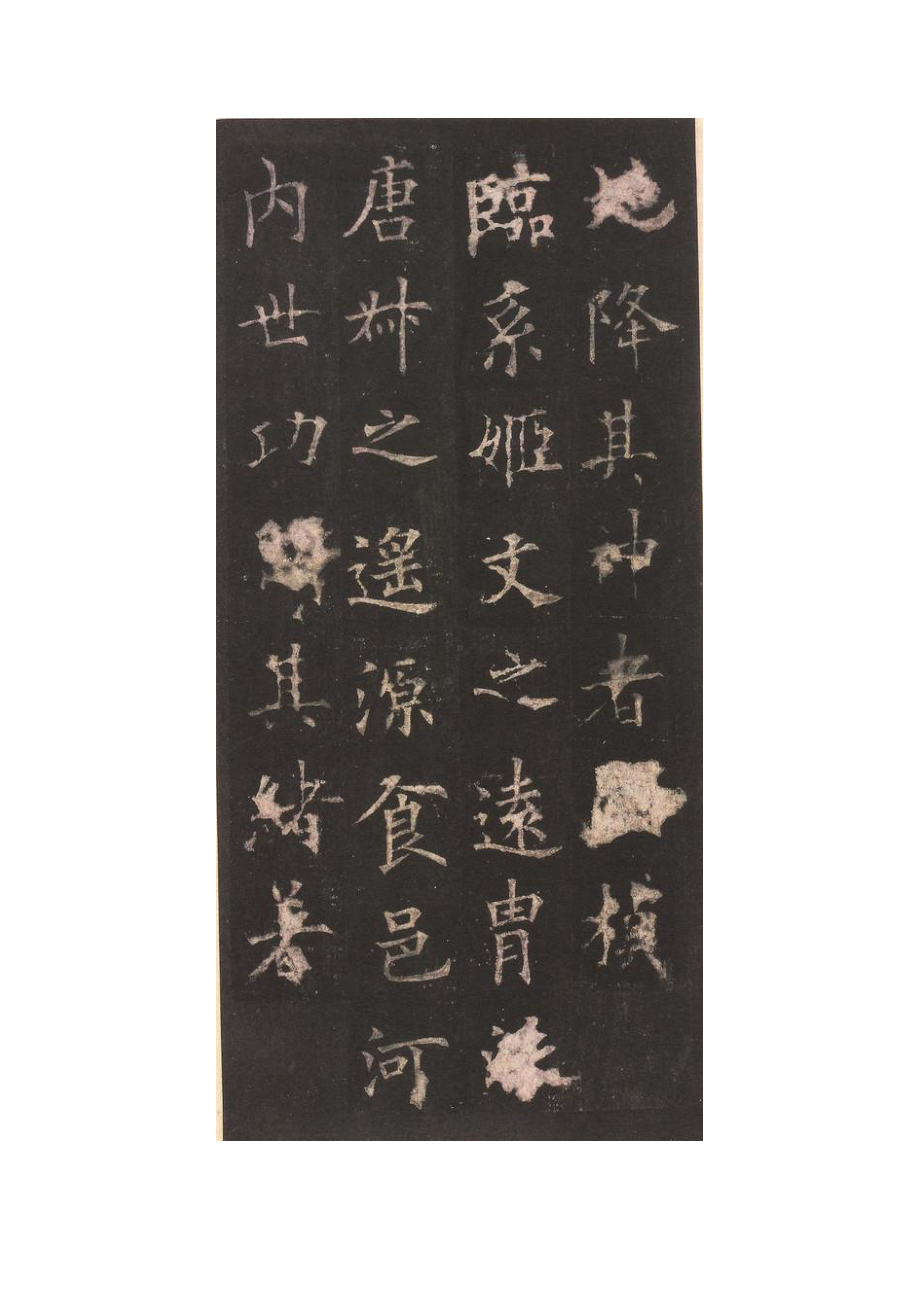 地降其神者
臨系姬文之遠胄
唐叔之遥源食邑河
内世功其緒著